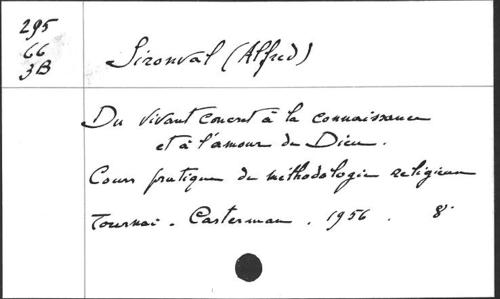 295
66
3B
Sironval (Alfred)
Du vivant concret à la connaissance
et à l'amour de Dieu.
Cours pratique de méthodologie religieuse
Tournai - Casterman . 1956 . 8°